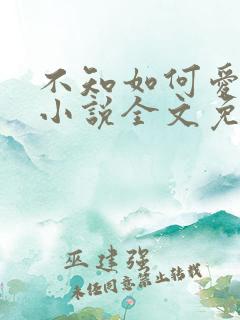 不知如何爱
小说全文免
巫建强
未经同意禁止转载